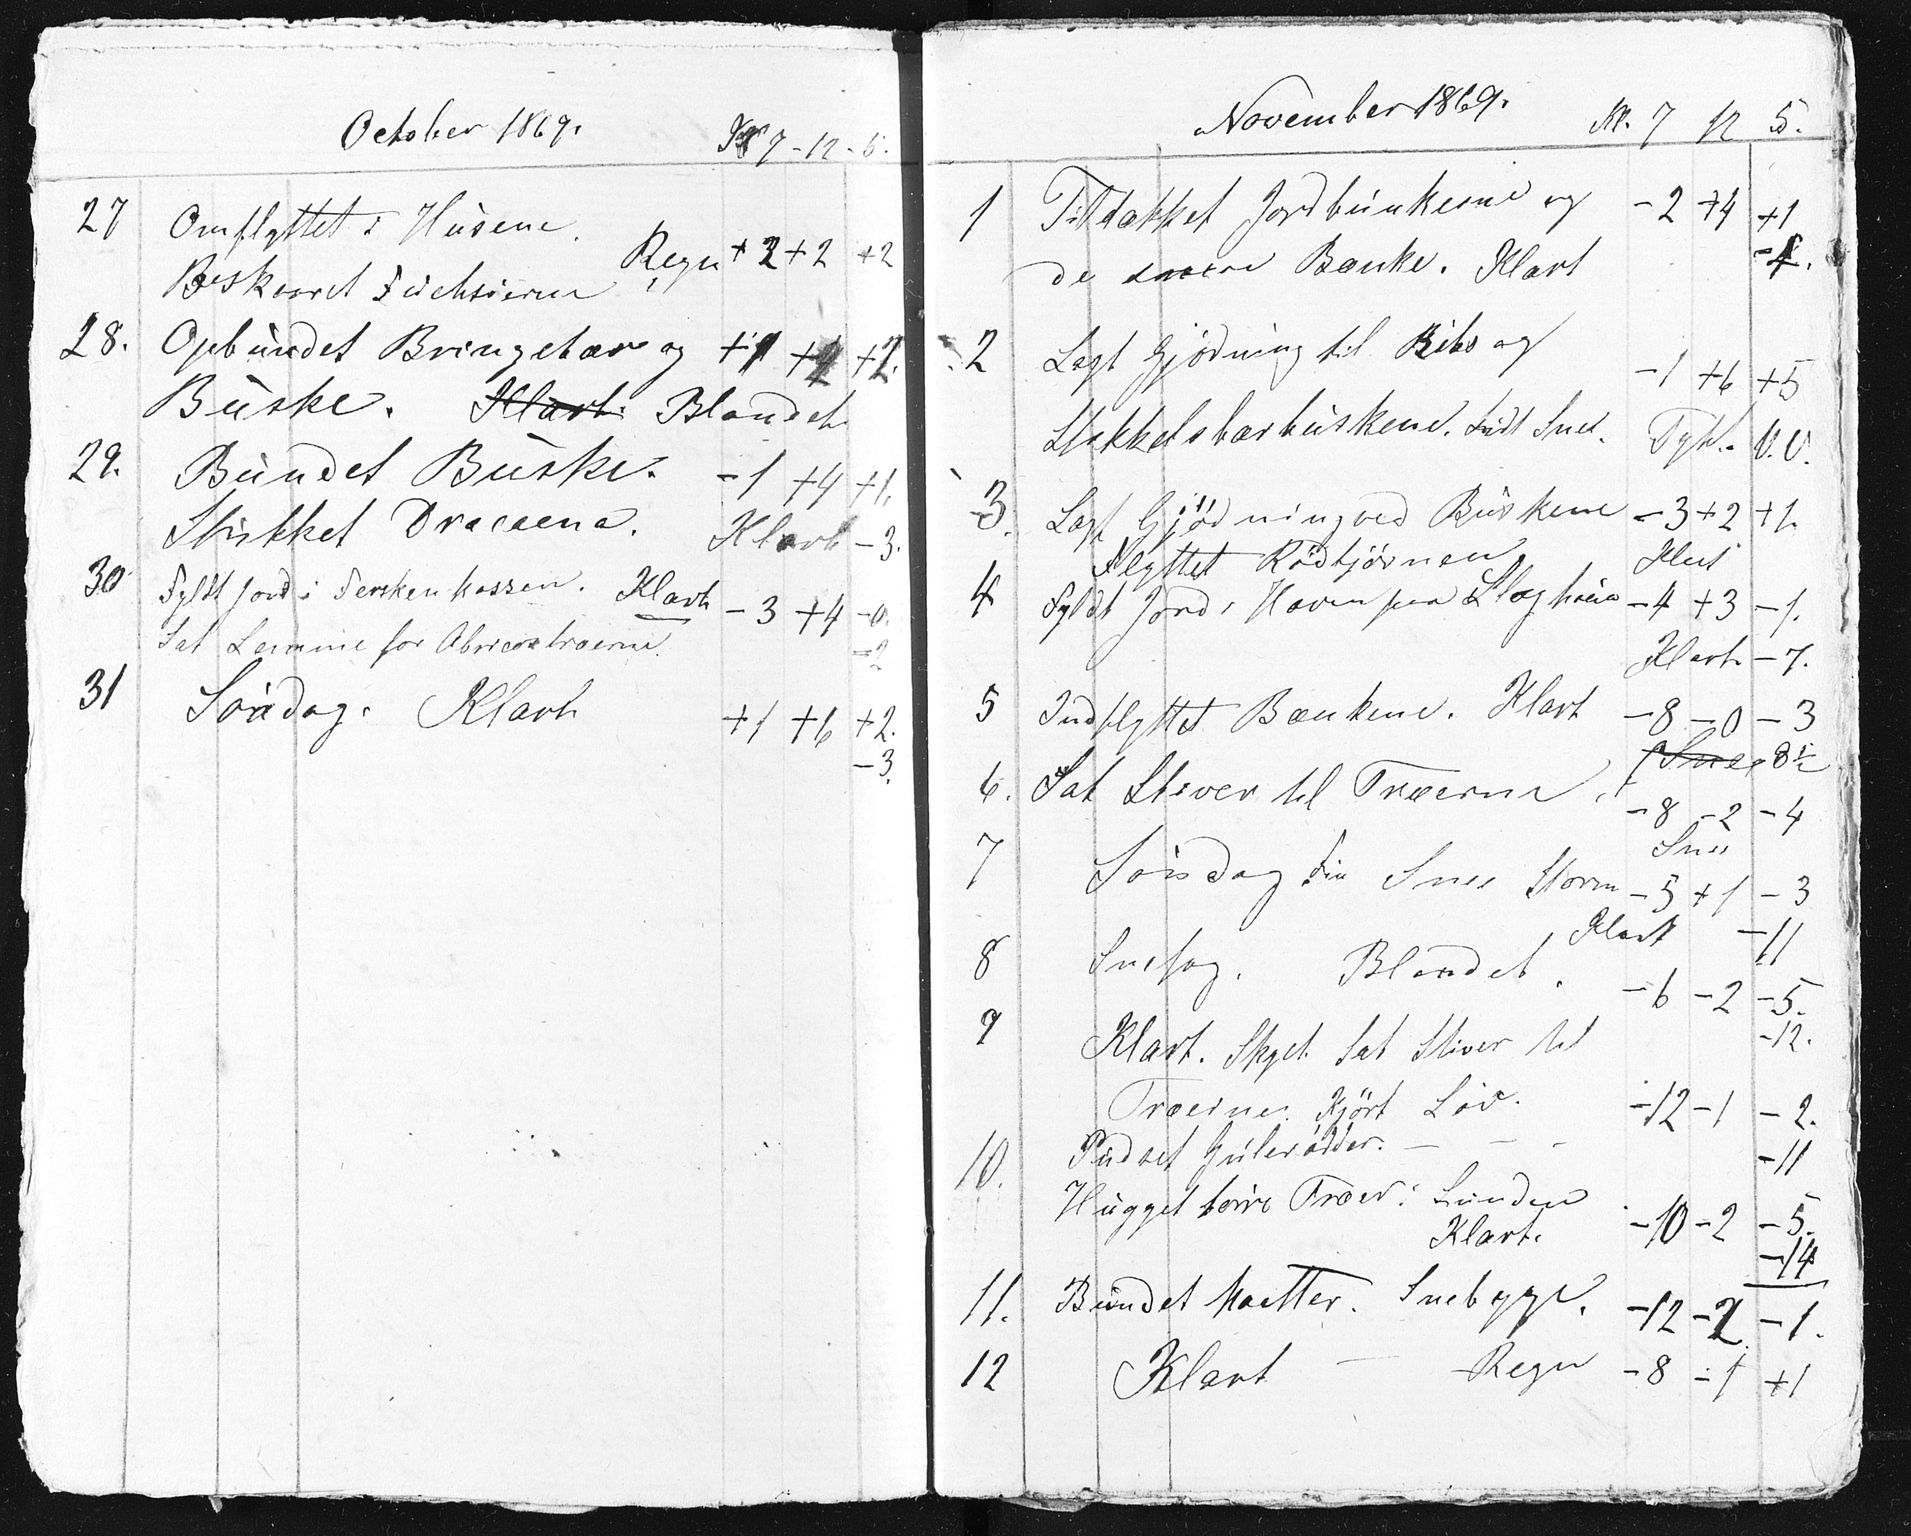 October 1869.
Kl 7 - 12 - 5.
27 Omflyttet i Husene.
Regn +2 +2 +2
Beskaaret Fuchsierne
28. Opbundet Bringebær og +1 +2 +2.
Buske. Klart. Blandet
29. Bundet Buske. -1 +4 +1.
Stikket Dracaena. Klart -3.
30 Fyldt Jord i Ferskenkassen. Klart -3 +4 -0.
Sat Lemme for Abricostræerne. -2
31 Søndag. Klart +1 +6 +2.
-3.
November 1869.
Kl. 7 12 5.
1 Tildækket Jordbunkerne og -2 +4 +1
de Bænke. Klart -4.
2 Lagt Gjødning til Ribs og -1 +6 +5
Stikkelsbærbuskene. Lidt Snee. Tykt. V.V.
3. Lagt Gjødning ved Buskene -3 +2 +1.
Flyttet Rødtjørnen
4 Fyldt Jord i Haven paa -4 +3 -1.
Klart -7.
5 Indflyttet Bænkene. Klart -8 -0 -3
Snee 8½
6. Sat Stiver til Træerne. -8 -2 -4
Snee
7 Søndag Fin Snee Storm -5 +1 -3
Klart -11
8 Snefog. Blandet. -6 -2 -5.
-12.
9 Klart. Skyet. Sat Stiver til
Træerne. Kjørt Løv. -12 -1 -2.
10. Pudset Gulerødder. - - - -11
Hugget tørre Træer i Lunden
Klart. -10 -2 -5.
-14
11. Bundet Maatter. Snebyge. -12 -2 -1.
12 Klart — Regn -8 -1 +1